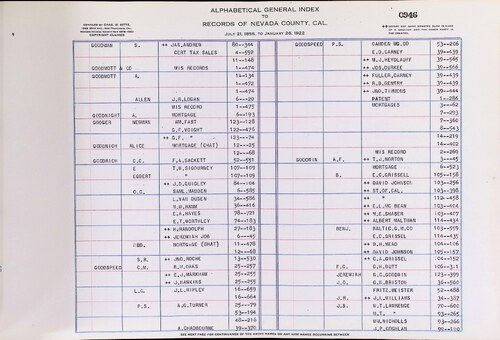 ALPHABETICAL GENERAL INDEX
TO
RECORDS OF NEVADA COUNTY, CAL.
JULY 21, 1856, TO JANUARY 26, 1922
COPYRIGHT CLAIMED
0946
GOODMAN S. ++ JAS. ANDREN 80--344
CERT TAX SALES 4--592
11--148
GOODNOTT & CO MIS RECORDS 1--474
GOODNOTT A. 1--134
1--472
1--474
ALLEN J.R. LOGAN 6--20
GOODNIGHT A. MORTGAGE 8--193
GOOGER NEWMAN WM. FAST 123--128
G.F. VOIGHT 122--476
++ G.F. " 123--74
GOODRICH ALICE MORTGAGE (CHAT) 12--25
12--68
GOODRICH C.C. F.A. SACKETT 52--551
E T.W. SIGOURNEY 107--109
EGBERT " 107--109
++ J.D. QUIGLEY 84--104
G.C. SAML. WADDEN 6--585
L. VAN GUDER 34--588
M.H. HAWK 36--416
E.A. HAYES 78--721
E.T. WORTHLEY 74--183
++ H. RANDOLPH 27--183
++ JEREMIAH JOB 6--45
MORTGAGE (CHAT) 11--478
12--68
S.R. ++ JNO. ROCHE 13--530
GOODSPEED C.M. H.M. OAKS 25--257
++ E.J. MARKHAM 25--255
J. HAWKINS 25--255
L.C. J.L. RIPLEY 16--659
16--664
P.S. A.G. TURNER 25---79
53--194
48--216
A. CHADBOURNE 39--370
GOODSPEED P.S. CAMDEN MG. CO 53--206
E.D. CARNEY 39--439
++ W.J. HEYSLAUFF 39--565
++ JOS. BURKEE 39--586
++ FULLER, CARNEY 39--439
++ R.B. GENTRY 39--439
++ JNO. THROOMS 39--444
PATENT 1--286
MORTGAGES 3--62
7--293
7--360
8--543
14--219
14--402
MIS RECORD 2--269
GOODWIN A.F. ++ T.J. NORTON 3---45
MORTGAGE 6--523
B. E.G. GRISSELL 105--158
++ DAVID JOHNSON 103--254
++ ST. OF CAL. 103--398
++ " 112--458
++ E.L. MC BEAN 103--404
++ M.E. SHASER 103--407
++ ALBERT MALTMAN 114--434
BENJ. BALTIC G.M. CO 103--559
E.G. GRISSELL 114--435
++ N.H. MEAD 104--106
++ DAVID JOHNSON 105--157
++ C.A. GRISSELL 104--152
F.C. C.H. NUTT 106--311
JEREMIAH N.C. GOODWIN 123--399
J.O. G.D. BRISTOR 36--560
FRITZ. MEISTER 52--488
J.R. ++ J.L. WILLIAMS 34--357
J.S. H.T. LAWRENCE 70--600
H.T. " 93--265
WM. NICHOLLS 93--266
J.P. COGHLAN